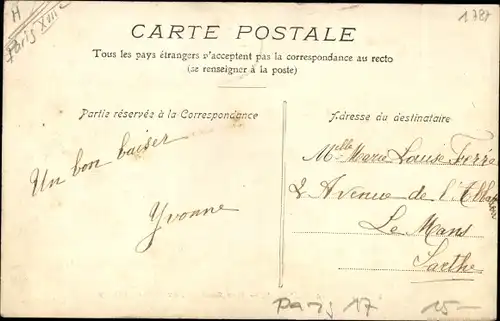 A
Paris XVII
1787
CARTE POSTALE
Tous les pays étrangers n'acceptent pas la correspondance au recto
(se renseigner à la poste)
Partie réservée à la Correspondance
Un bon baiser
Yvonne
Adresse du destinataire
Melle Marie Louise Ferré
2 Avenue de l'Abbaye
Le Mans
Sarthe
Paris 17 15-